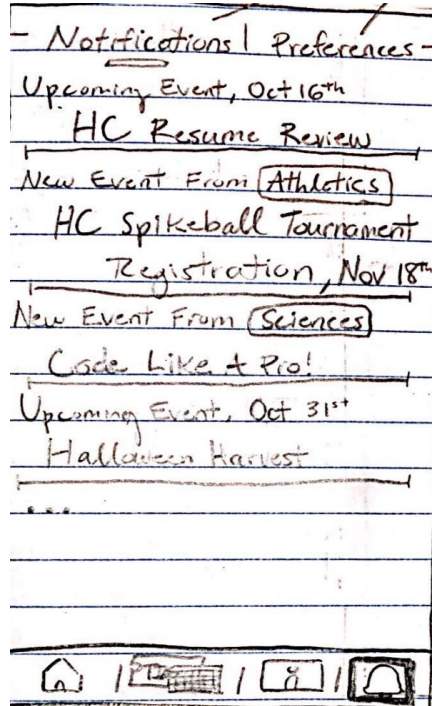 - Notifications | Preferences -
Upcoming Event, Oct 16th
HC Resume Review
New Event From Athletics
HC Spikeball Tournament
Registration, Nov 18th
New Event From Sciences
Code Like A Pro!
Upcoming Event, Oct 31st
Halloween Harvest
...